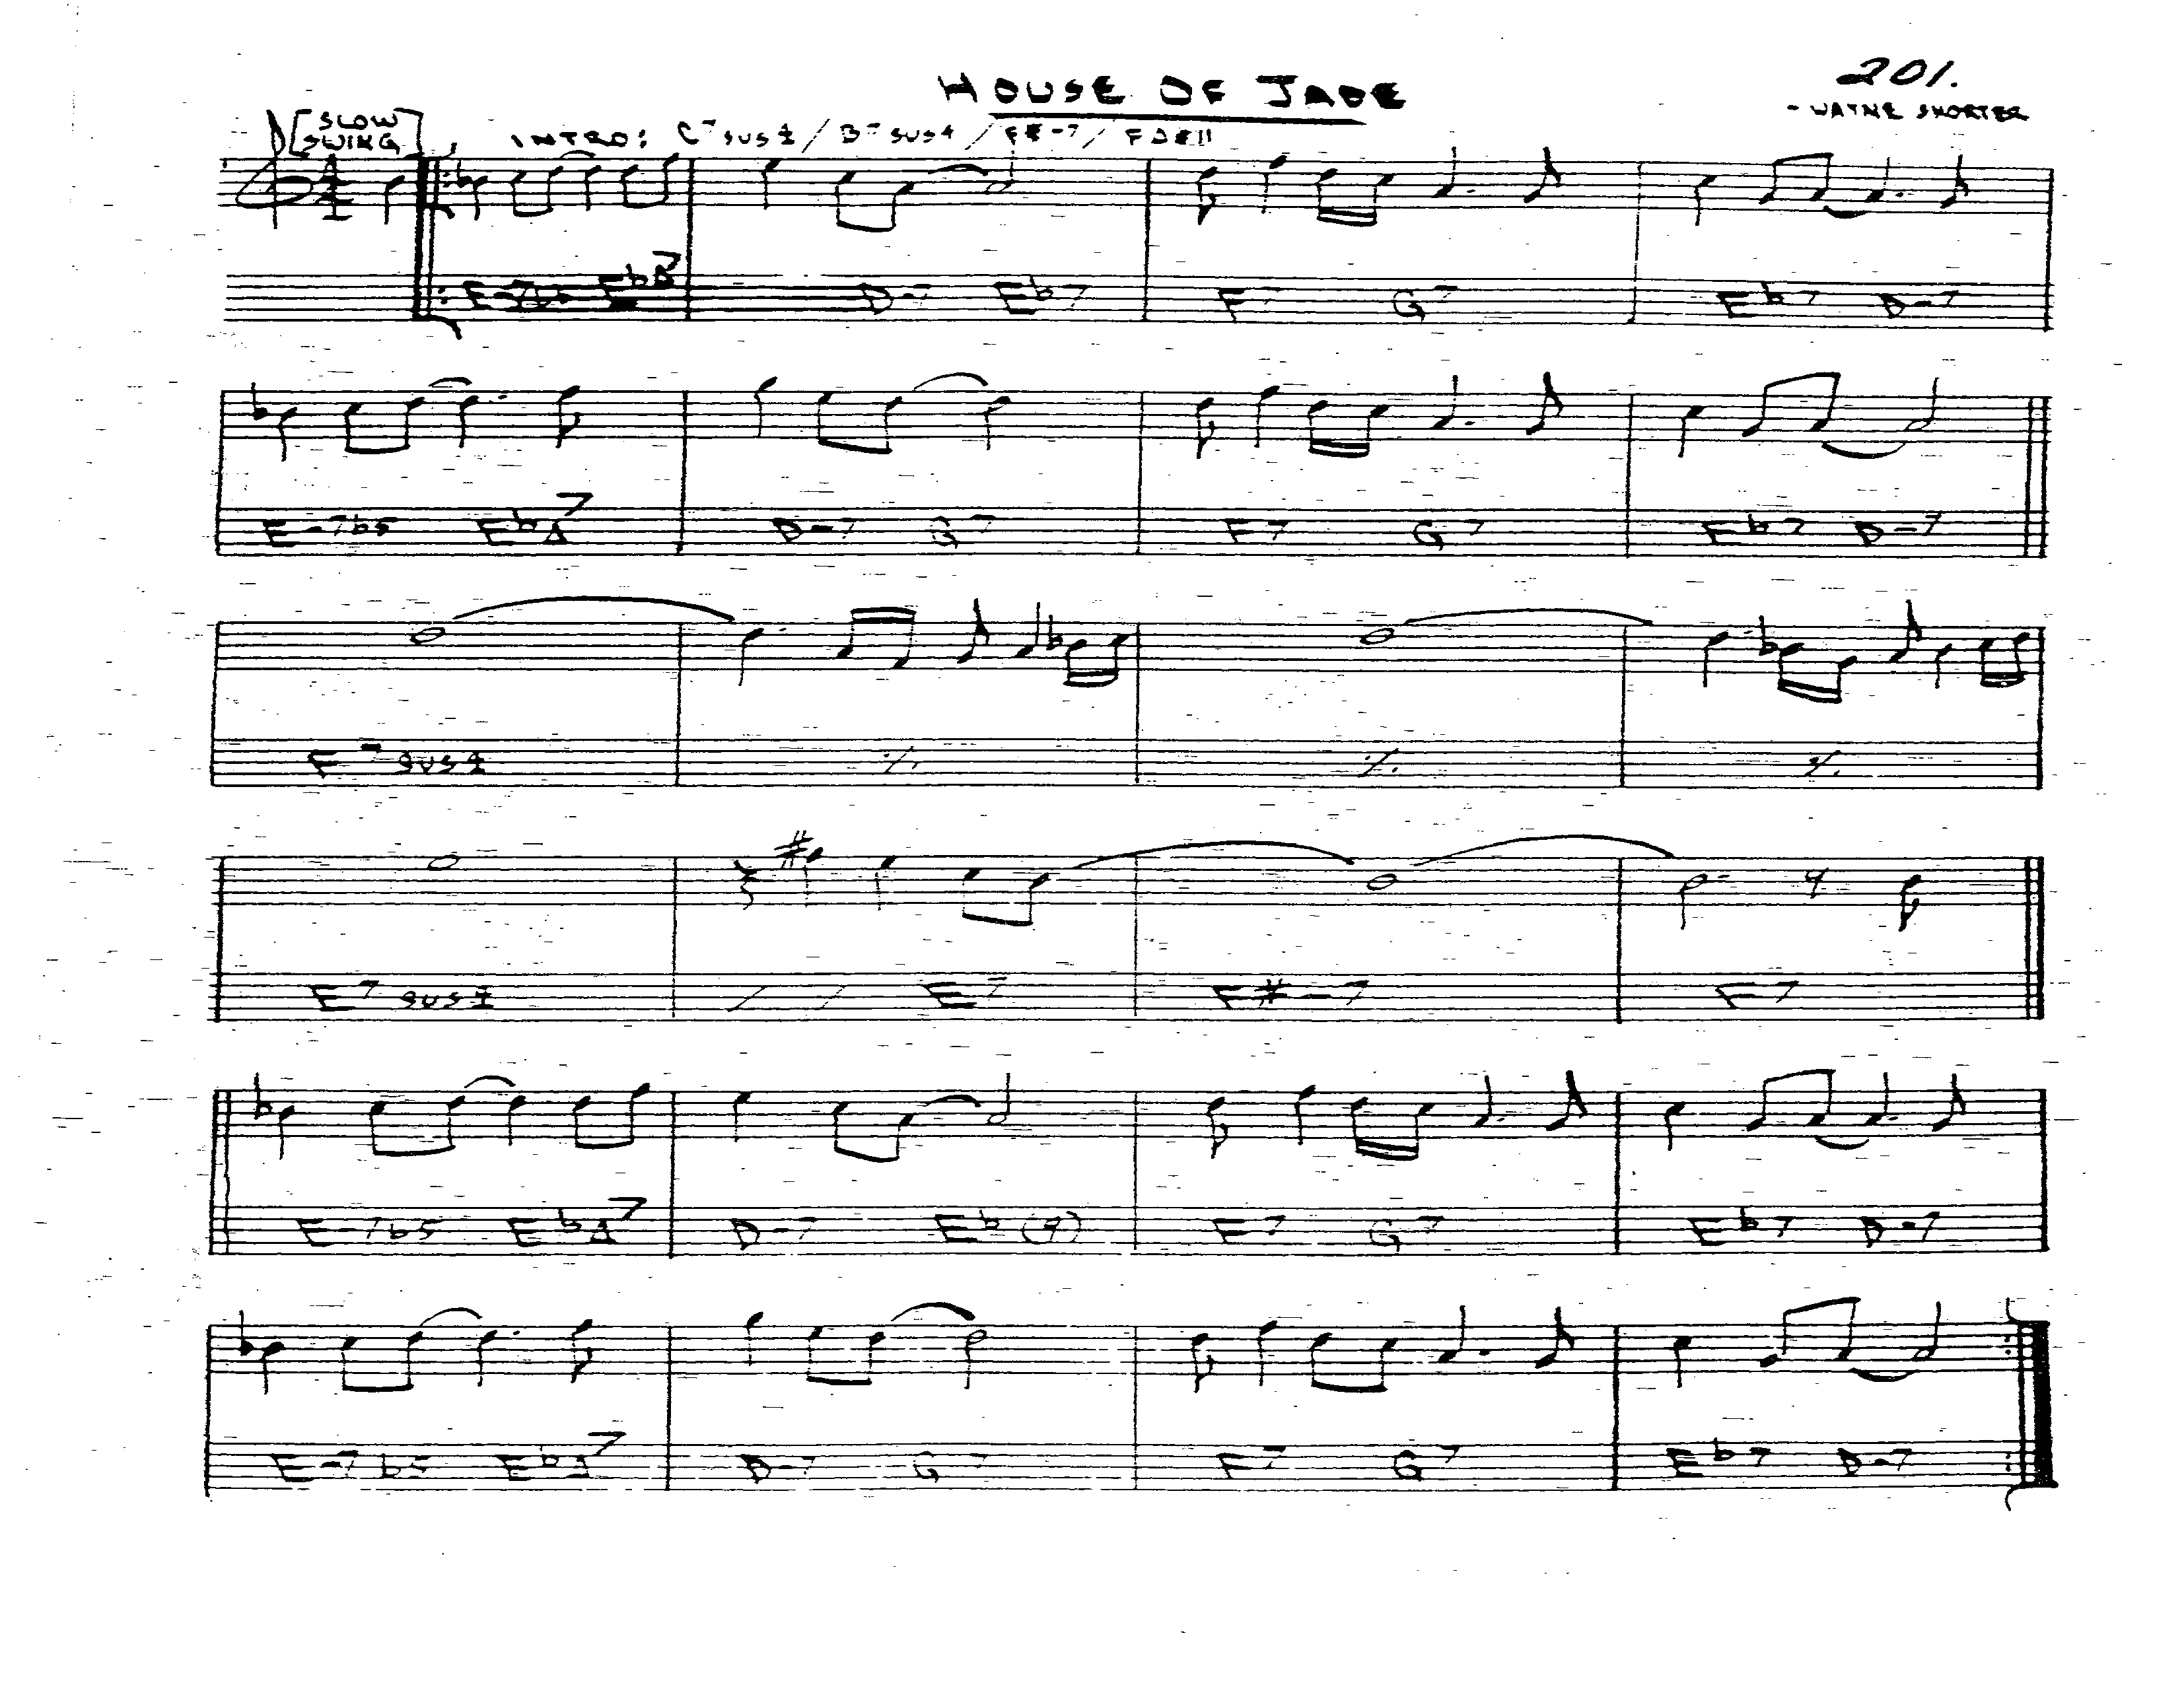 HOUSE OF JADE
201.
- WAYNE SHORTER
[SLOW SWING]
INTRO: C7sus4 / B7sus4 / F#-7 /
E-7b5 EbΔ7 D-7 Eb7 F7 G7 Eb7 D-7
E-7b5 EbΔ7 D-7 G7 F7 G7 Eb7 D-7
F7sus4
E7sus4 / / E7 F#-7 F7
E-7b5 EbΔ7 D-7 Eb(7) F7 G7 Eb7 D-7
E-7b5 EbΔ7 D-7 G7 F7 G7 Eb7 D-7